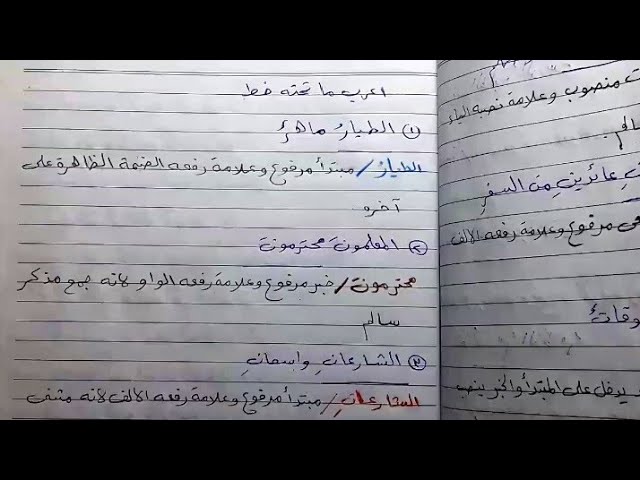 اعرب ما تحته خط
① الطيارُ ماهرٌ
الطيارُ / مبتدأ مرفوع وعلامة رفعه الضمة الظاهرة على
آخره
② المعلمونَ محترمونَ
محترمونَ / خبر مرفوع وعلامة رفعه الواو لانه جمع مذكر
سالم
③ الشارعانِ واسعانِ
الشارعانِ / مبتدأ مرفوع وعلامة رفعه الالف لانه مثنى
منصوب وعلامة نصبه الياء
سالم
عائدينِ مِنَ السفرِ
مرفوع وعلامة رفعه الالف
يدخل على المبتدأ والخبر ينصب